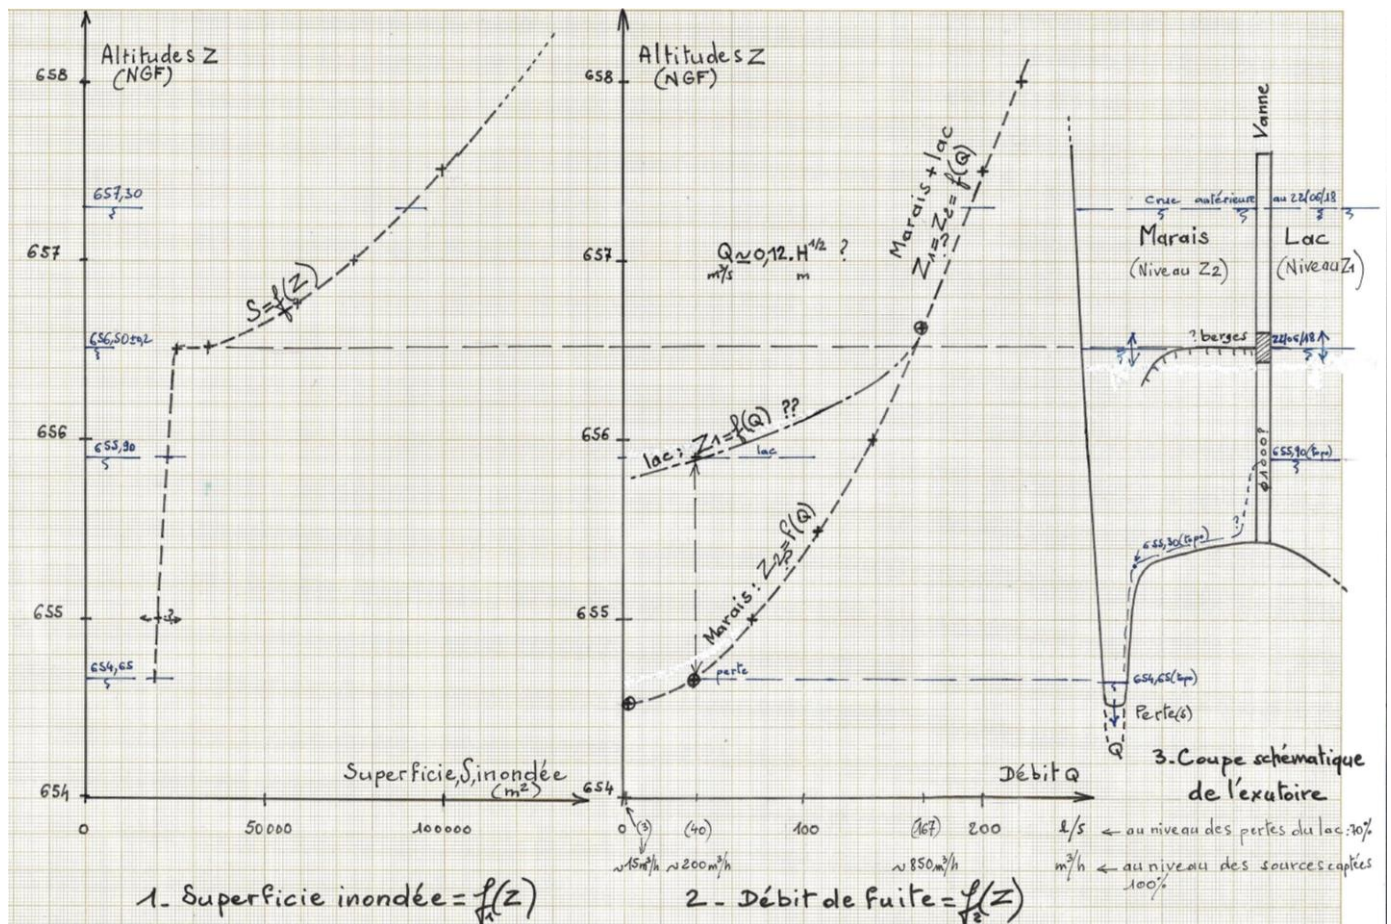 Altitudes Z
(NGF)
658
657,30
657
S=f(Z)
656,50±0,2
656
655,90
655
?
654,65
654
Superficie, S, inondée
(m²)
0
50000
100000
1_ Superficie inondée = f1(Z)
Altitudes Z
(NGF)
658
Marais + lac
Z1=Z2=f(Q)
?
Q≃0,12.H^1/2 ?
m³/s m
657
656
lac : Z1=f(Q) ??
lac
Marais : Z2=f(Q)
655
perte
654
Débit Q
0 (3) (40) 100 (167) 200 l/s ← au niveau des pertes du lac : 70%
~15m³/h ~200m³/h ~850m³/h m³/h ← au niveau des sources captées
100%
2 _ Débit de fuite = f2(Z)
Vanne
crue antérieure au 22/06/18
Marais
(Niveau Z2)
Lac
(Niveau Z1)
? berges
22/06/18
ø1000?
655,90(topo)
?
655,30(topo)
654,65(topo)
Perte(s)
Q
3_Coupe schématique
de l'exutoire